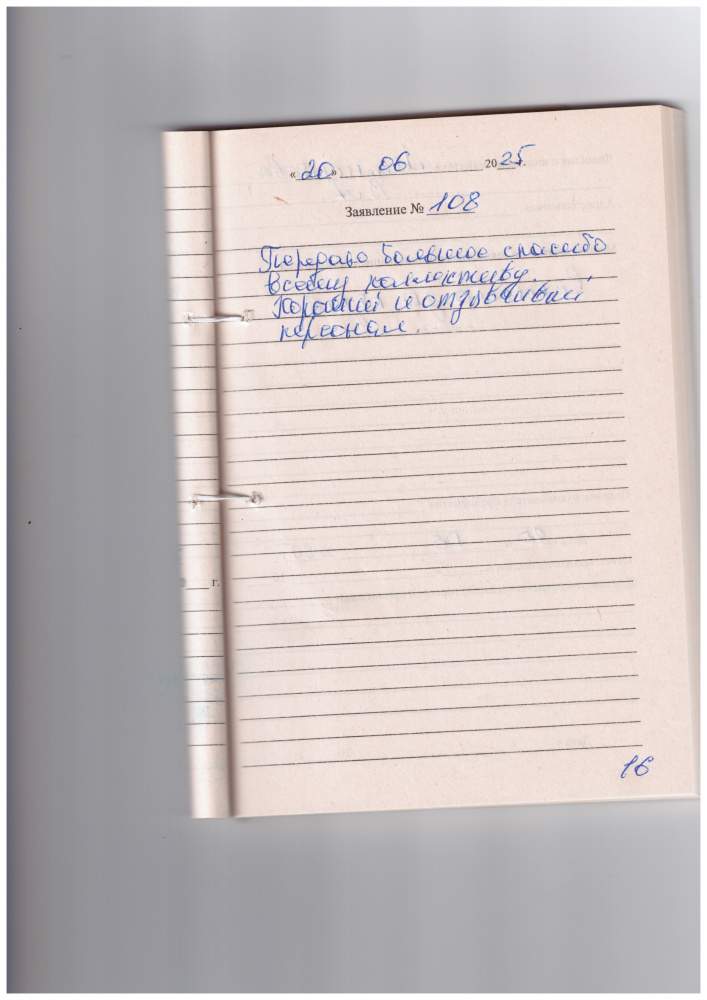 « 20 » 06 2025 г.
Заявление № 108
Передаю большое спасибо
всему коллективу.
Хороший и отзывчивый
персонал.
г.
16